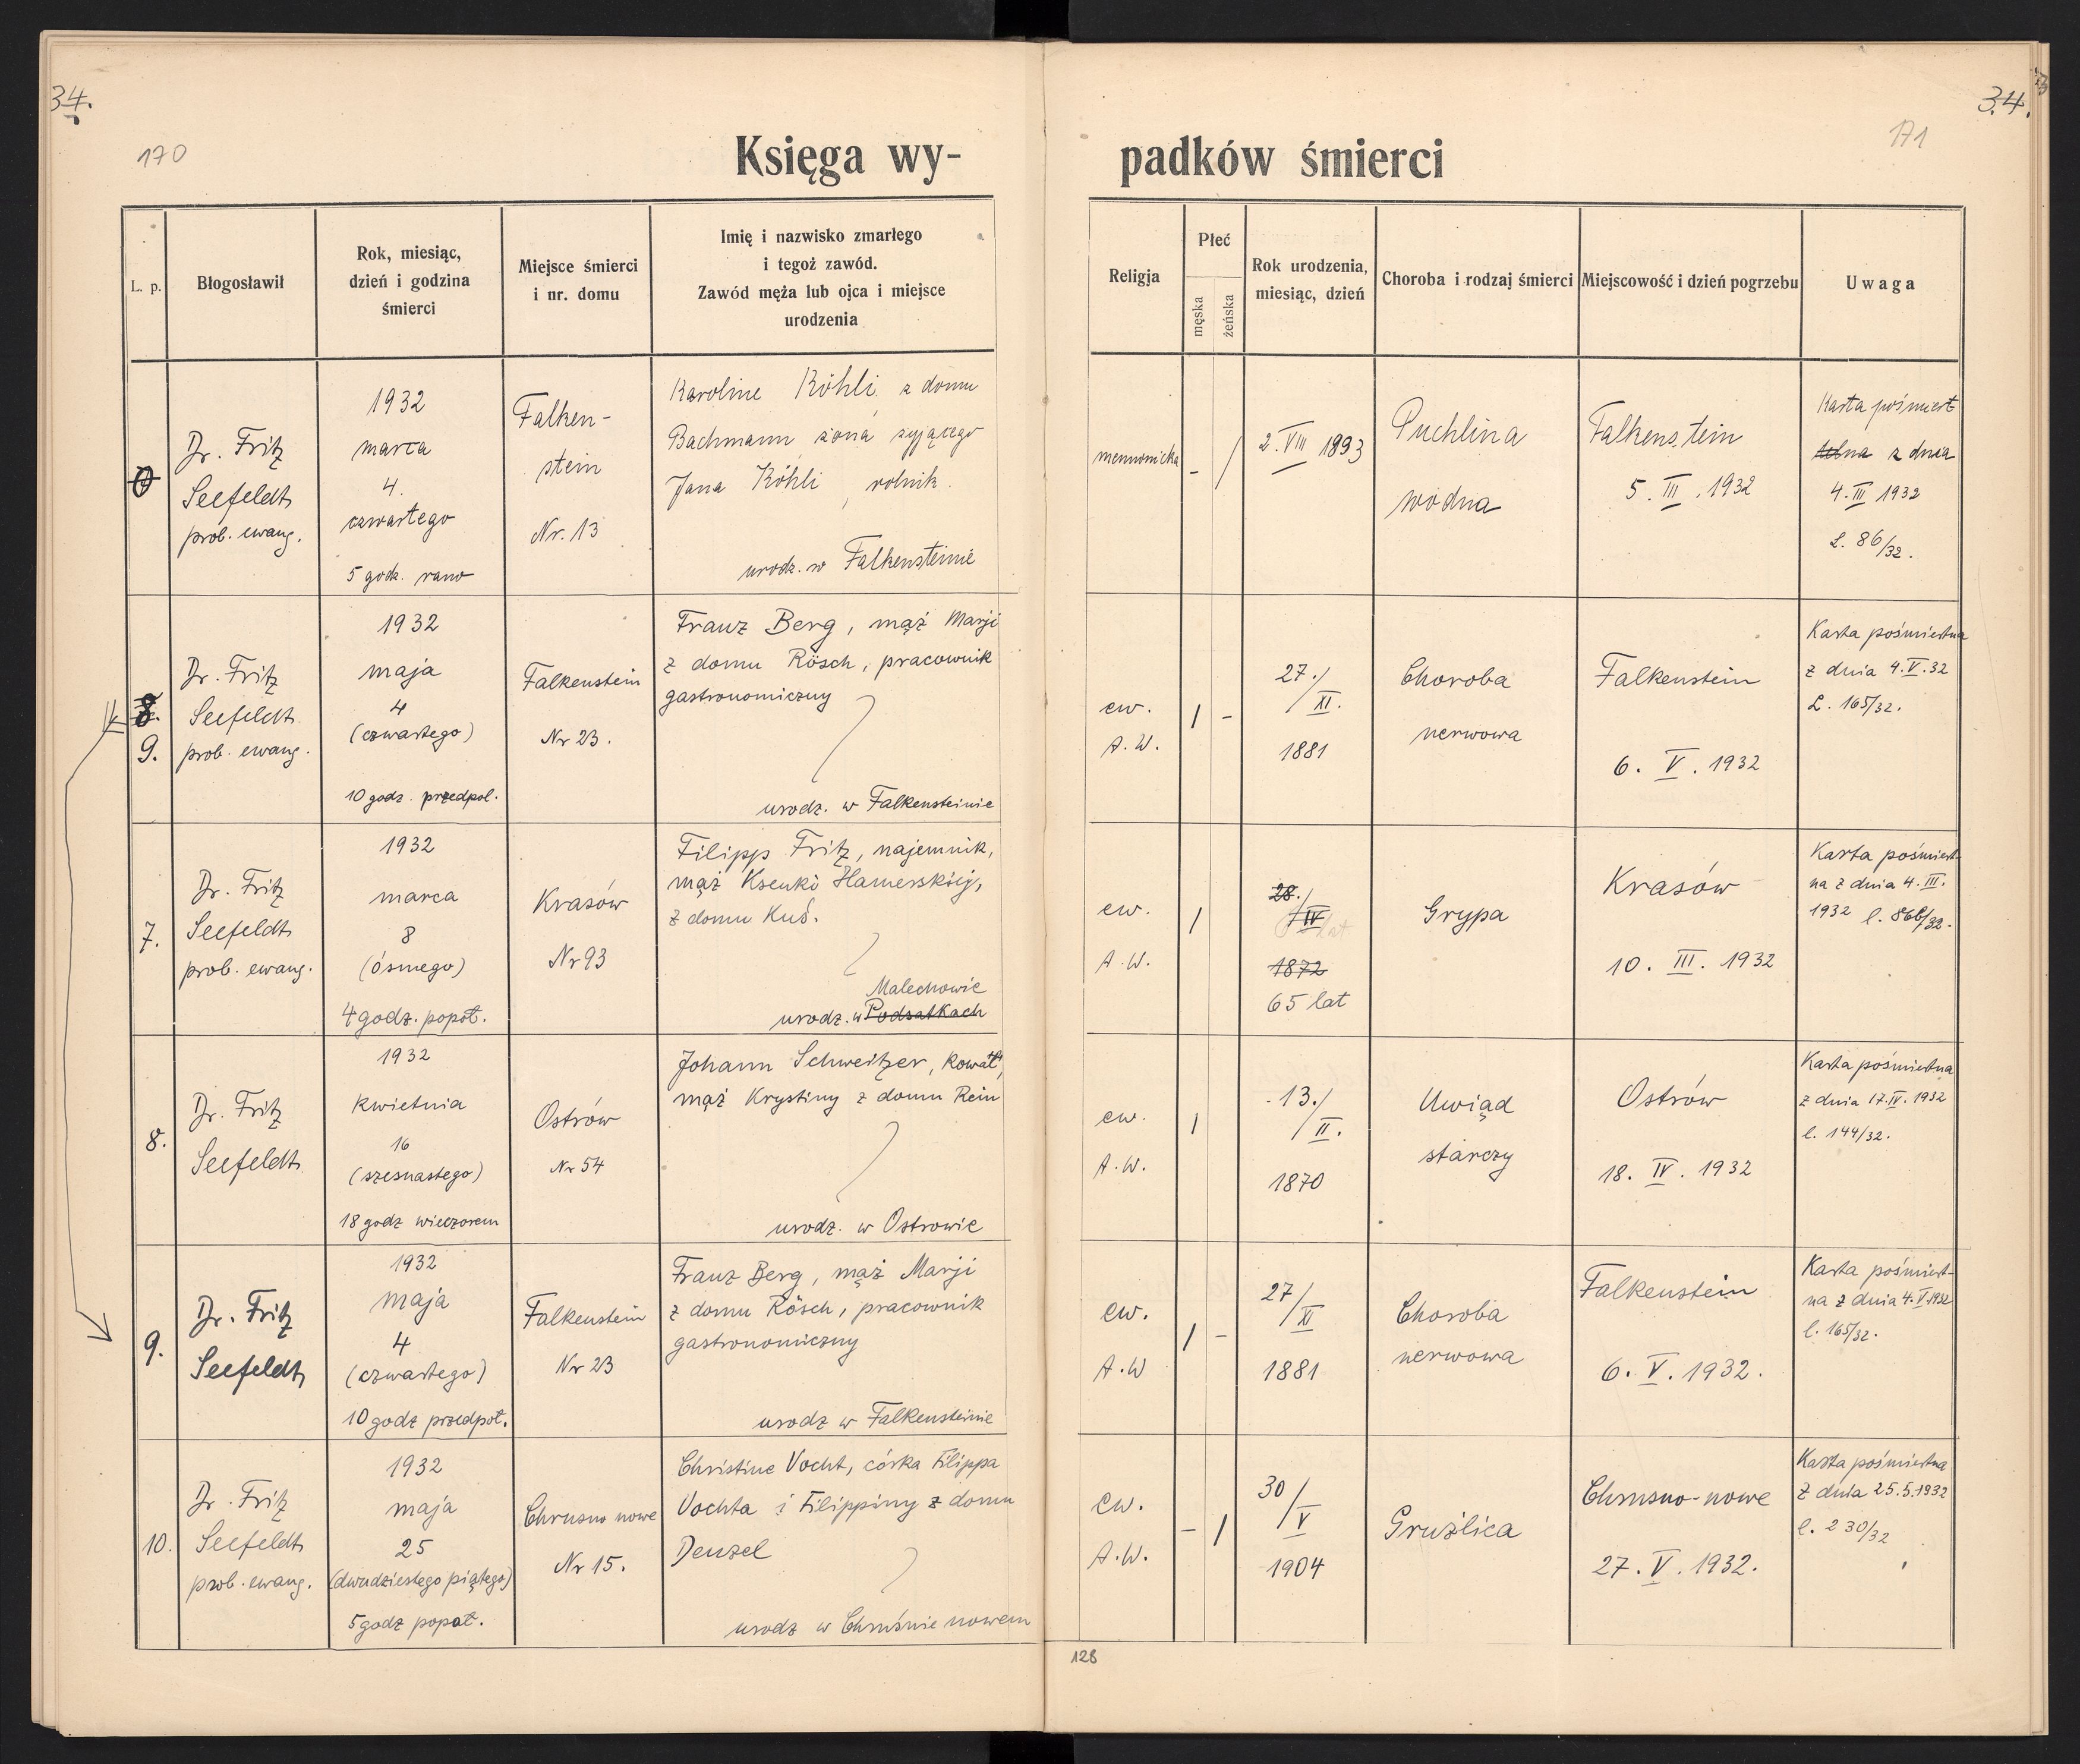 34.
34.
170
171
Księga wy-
padków śmierci
L. p.
Błogosławił
Rok, miesiąc,
dzień i godzina
śmierci
Miejsce śmierci
i nr. domu
Imię i nazwisko zmarłego
i tegoż zawód.
Zawód męża lub ojca i miejsce
urodzenia
Religja
Płeć
męska
żeńska
Rok urodzenia,
miesiąc, dzień
Choroba i rodzaj śmierci
Miejscowość i dzień pogrzebu
Uwaga
Dr. Fritz
Seefeldt
prob. ewang.
1932
marca
4.
czwartego
5 godz. rano
Falken-
stein
Nr. 13
Karoline Köhli z domu
Bachmann, żona żyjącego
Jana Köhli, rolnik.
urodz. w Falkensteinie
mennonicka
- /
2. VIII 1893
Puchlina
wodna
Falkenstein
5. III. 1932
Karta pośmiert
telna z dnia
4. III 1932
L. 86/32.
8.
9.
Dr. Fritz
Seefeldt
prob. ewang.
1932
maja
4
(czwartego)
10 godz. przedpoł.
Falkenstein
Nr 23.
Franz Berg, mąż Marji
z domu Rösch, pracownik
gastronomiczny
urodz. w Falkensteinie
ew.
A. W.
/ -
27./
XI.
1881
Choroba
nerwowa
Falkenstein
6. V. 1932
Karta pośmiertna
z dnia 4. V. 32
L. 165/32.
7.
Dr. Fritz
Seefeldt
prob. ewang.
1932
marca
8
(ósmego)
4 godz. popoł.
Krasów
Nr 93
Filipp Fritz, najemnik,
mąż Ksenki Hamerskiej,
z domu Kuś.
Malechowie
urodz. w Podsatkach
ew.
A. W.
/
28./
IV
1872
65 lat
Grypa
Krasów
10. III. 1932
Karta pośmiert-
na z dnia 4. III.
1932 l. 86b/32.
8.
Dr. Fritz
Seefeldt
1932
kwietnia
16
(szesnastego)
18 godz wieczorem
Ostrów
Nr 54
Johann Schweitzer, kowal,
mąż Krystiny z domu Rein
urodz. w Ostrowie
ew.
A. W.
/
13./
II.
1870
Uwiąd
starczy
Ostrów
18. IV. 1932
Karta pośmiertna
z dnia 17. IV. 1932
l. 144/32.
9.
Dr. Fritz
Seefeldt
1932
maja
4
(czwartego)
10 godz przedpoł.
Falkenstein
Nr 23
Franz Berg, mąż Marji
z domu Rösch, pracownik
gastronomiczny
urodz w Falkensteinie
ew.
A. W
/ -
27/
XI
1881
Choroba
nerwowa
Falkenstein
6. V. 1932.
Karta pośmiert-
na z dnia 4. V. 1932
l. 165/32.
10.
Dr. Fritz
Seefeldt
prob. ewang.
1932
maja
25
(dwudziestego piątego)
5 godz popoł.
Chrusno nowe
Nr 15.
Christine Vocht, córka Filippa
Vochta i Filippiny z domu
Denzel
urodz w Chruśnie nowem
ew.
A. W.
- /
30/
V
1904
Gruźlica
Chrusno-nowe
27. V. 1932.
Karta pośmiertna
z dnia 25.5.1932
l. 230/32
128